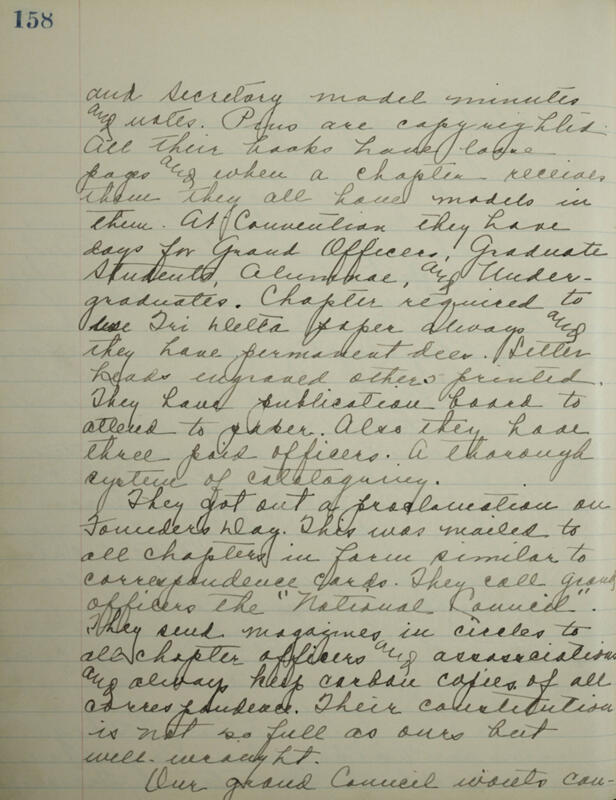 158
and Secretary model minutes
and notes. Pins are copyrighted.
All their books have loose
pages and when a chapter receives
them they all have models in
them. At Convention they have
days for Grand Officers, Graduate
Students, Alumnae, and Under-
graduates. Chapter required to
use Tri Delta paper always and
they have permanent dies. Letter
heads engraved others printed.
They have publication board to
attend to paper. Also they have
three paid officers. A thorough
system of cataloguing.
They got out a proclamation on
Founders Day. This was mailed to
all chapters in form similar to
correspondence cards. They call grand
officers the "National Council".
They send magazines in circles to
all chapter officers and associations
and always keep carbon copies of all
correspondence. Their constitution
is not so full as ours but
well-wrought.
Our grand Council wants con-